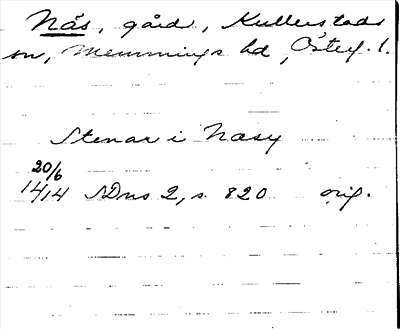 Näs, gård, Kullerstads
sn, Memmings hd, Österg. l.
Stenar i Næsy
20/6
1414 SDns 2, s. 820 orig.